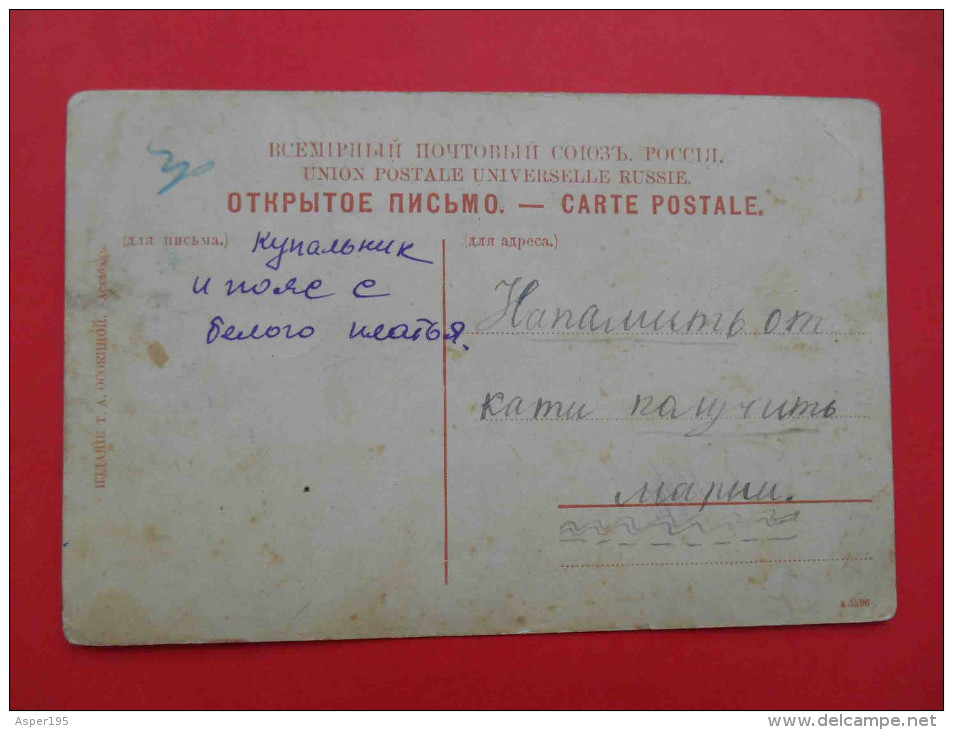 ВСЕМІРНЫЙ ПОЧТОВЫЙ СОЮЗЪ. РОССІЯ.
UNION POSTALE UNIVERSELLE RUSSIE.
ОТКРЫТОЕ ПИСЬМО. — CARTE POSTALE.
(для письма.)
Купальник
и пояс с
белого платья.
(для адреса.)
Напамить от
кати палучить
марии.
ИЗДАНІЕ Т. А. ОСОКИНОЙ.
Asper195
www.delcampe.net